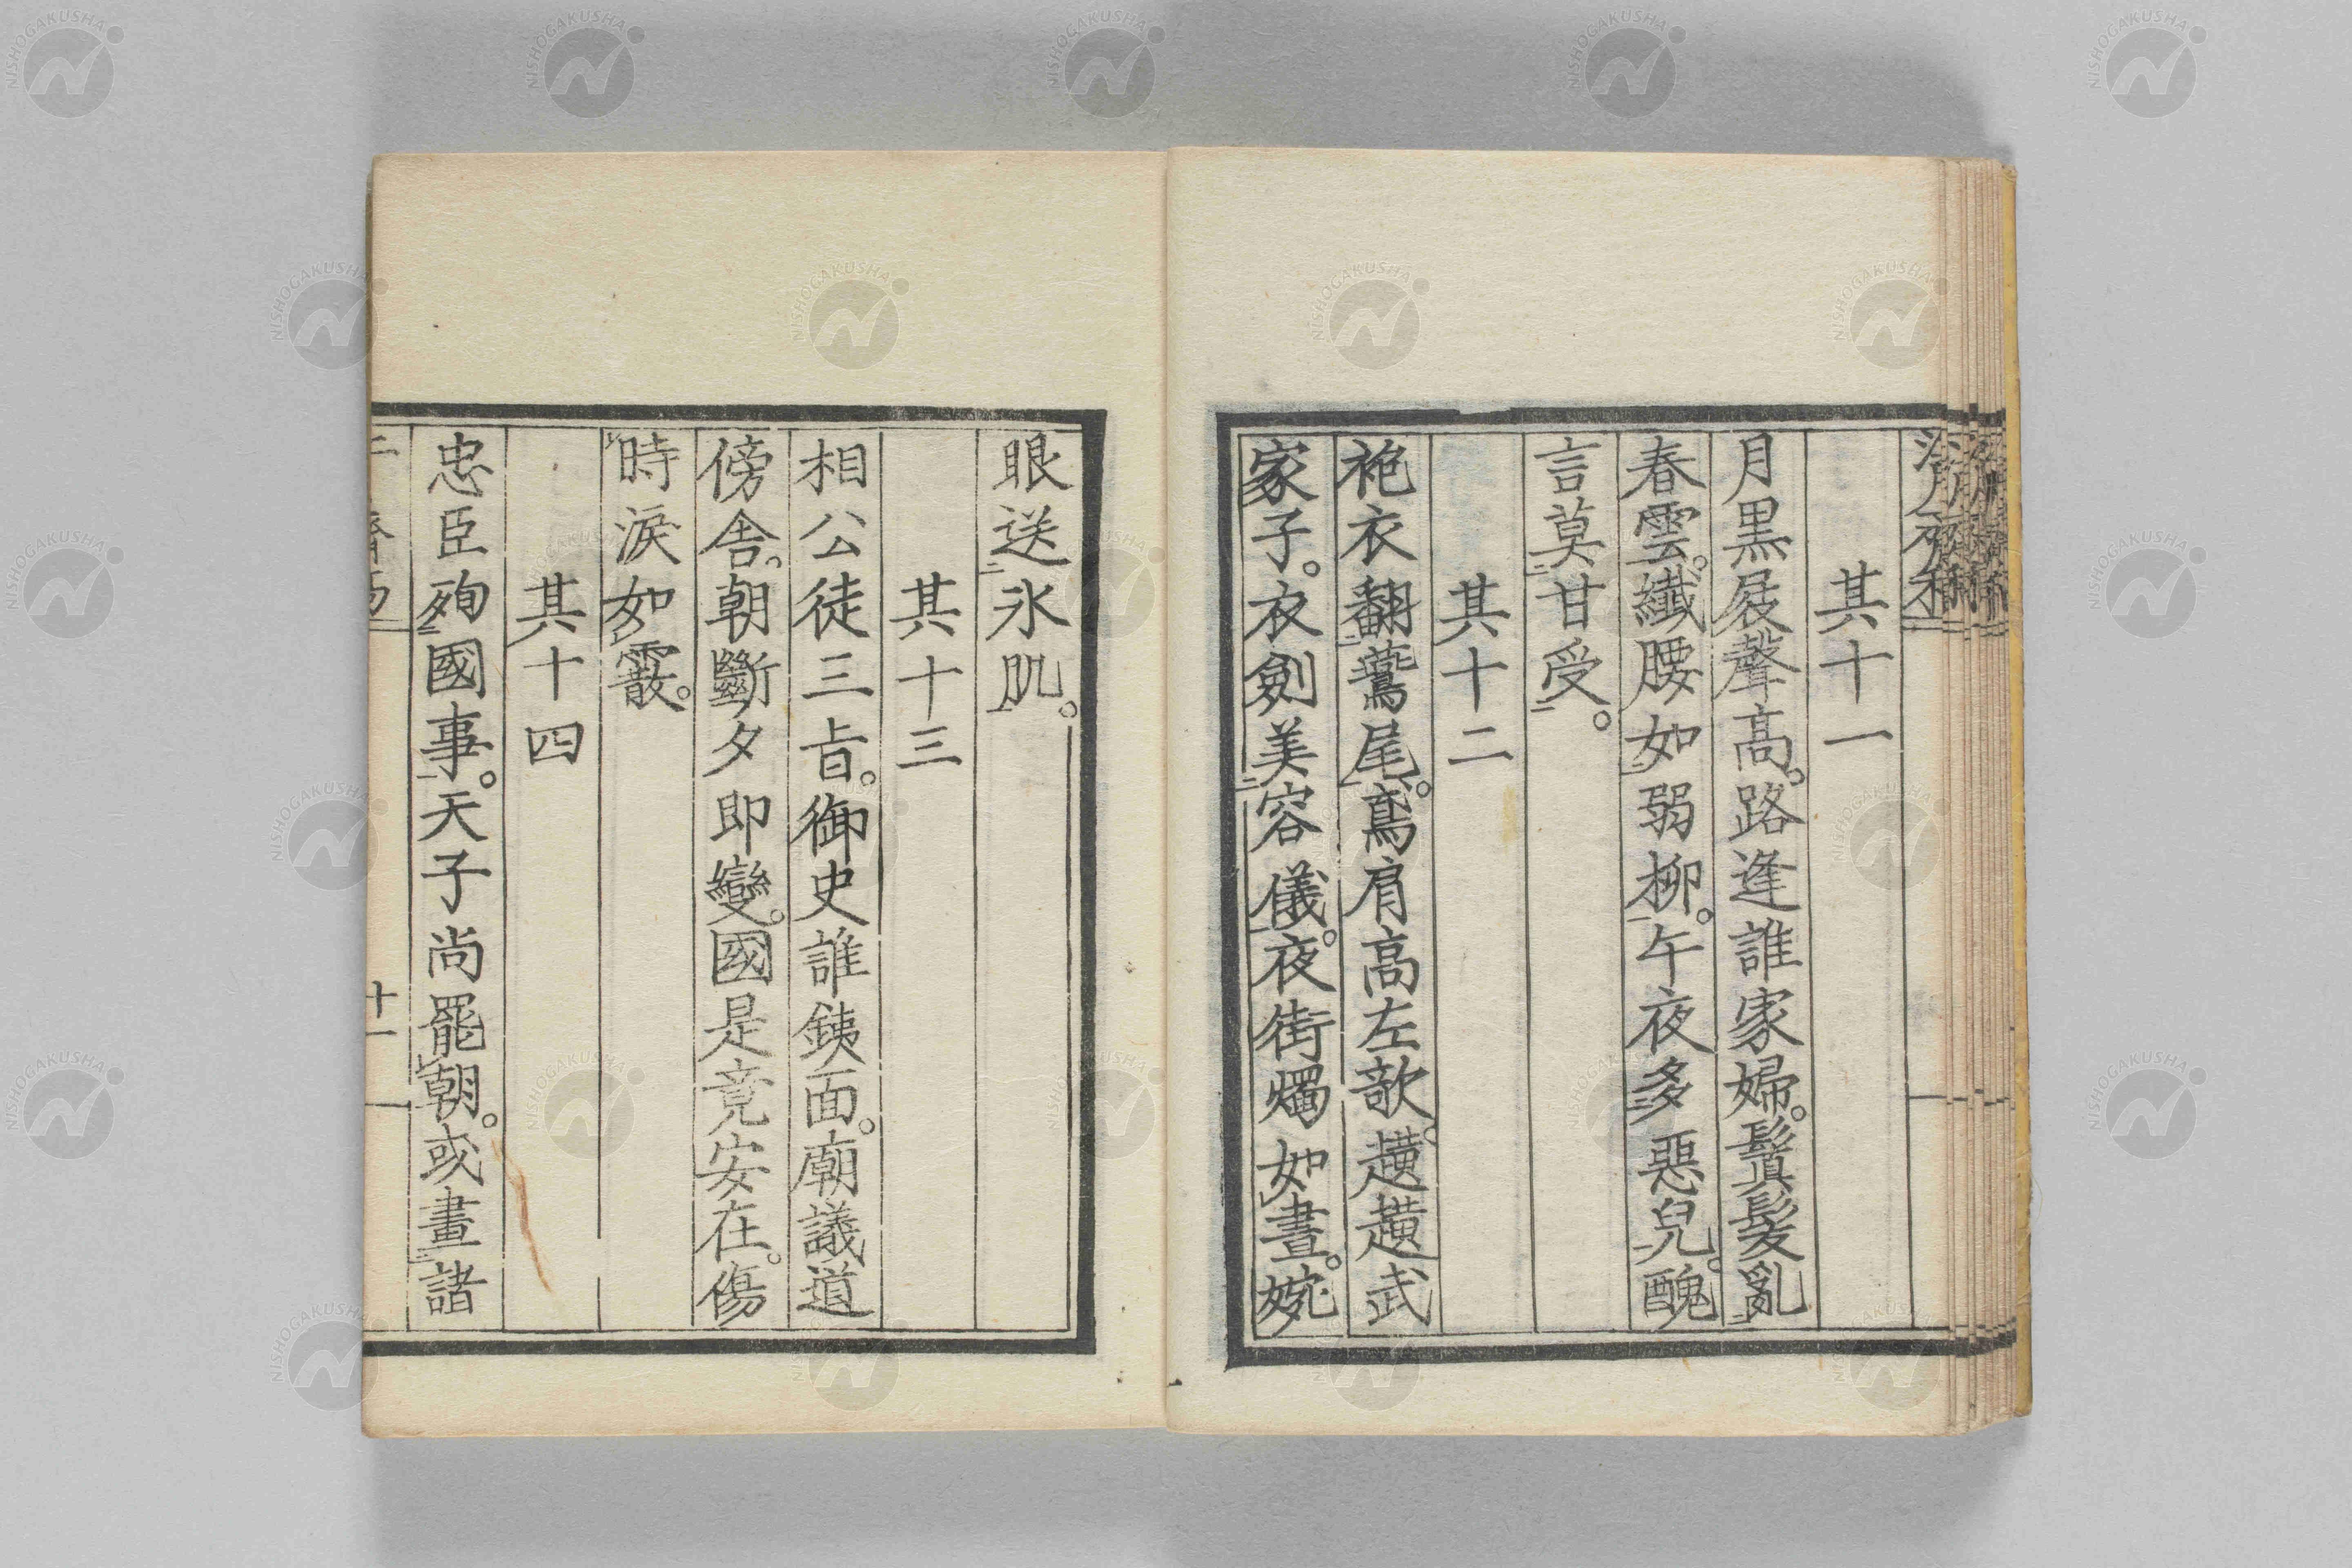 其十一
月黒屐聲高。路逢誰家婦。鬒髮亂
春雲。纖腰如弱柳。午夜多惡兒。醜
言莫甘受。
其十二
袍衣翻鷰尾。鳶肩高左欹。趪趪武
家子。衣劍美容儀。夜街燭如晝。婉
眼送氷肌。
其十三
相公徒三㫖。御史誰銕面。廟議道
傍舎。朝斷夕即變。國是竟安在。傷
時淚如霰。
其十四
忠臣殉國事。天子尚罷朝。或畫諸
十一
NISHOGAKUSHA